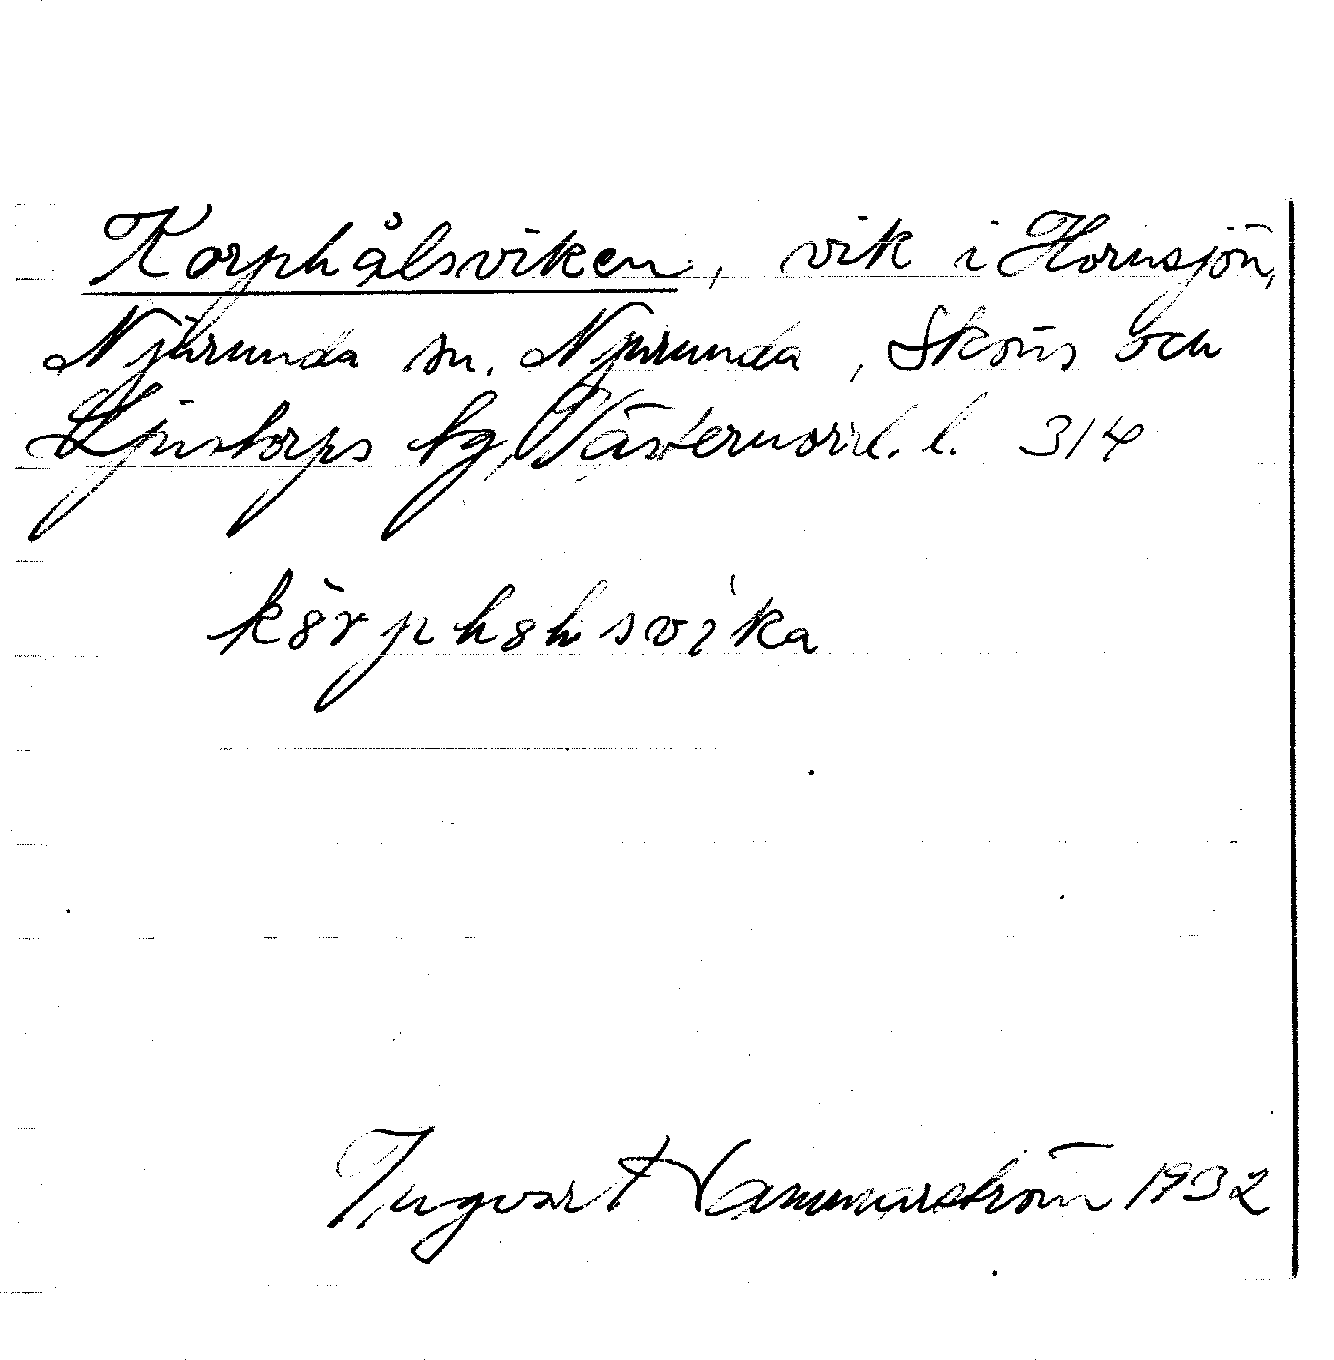 Korphålsviken, vik i Hornsjön,
Njurunda sn. Njurunda, Sköns och
Ljustorps tg, Västernorrl. l. 314
Ingvar Hammarström 1932